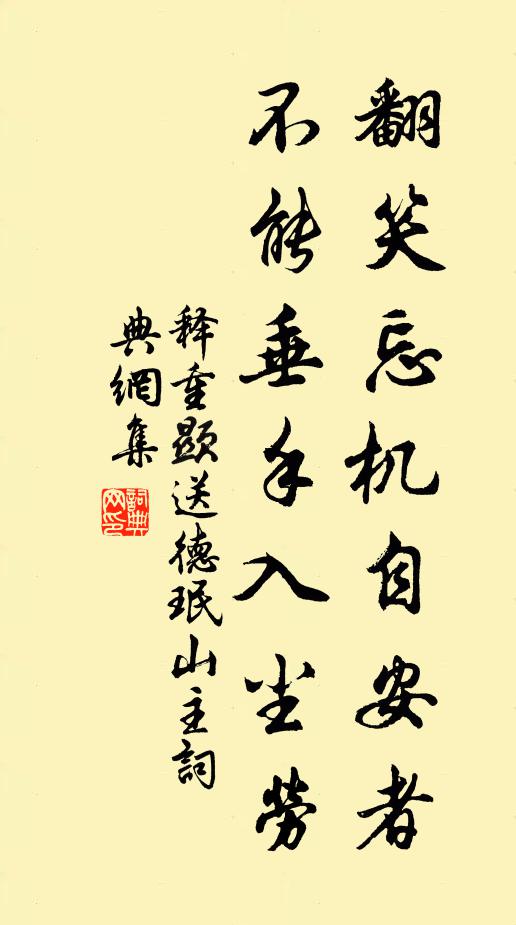 翻笑忘机自安者
不能垂手入尘劳
释重顯送德珉山主詞
典網集
詞典网印